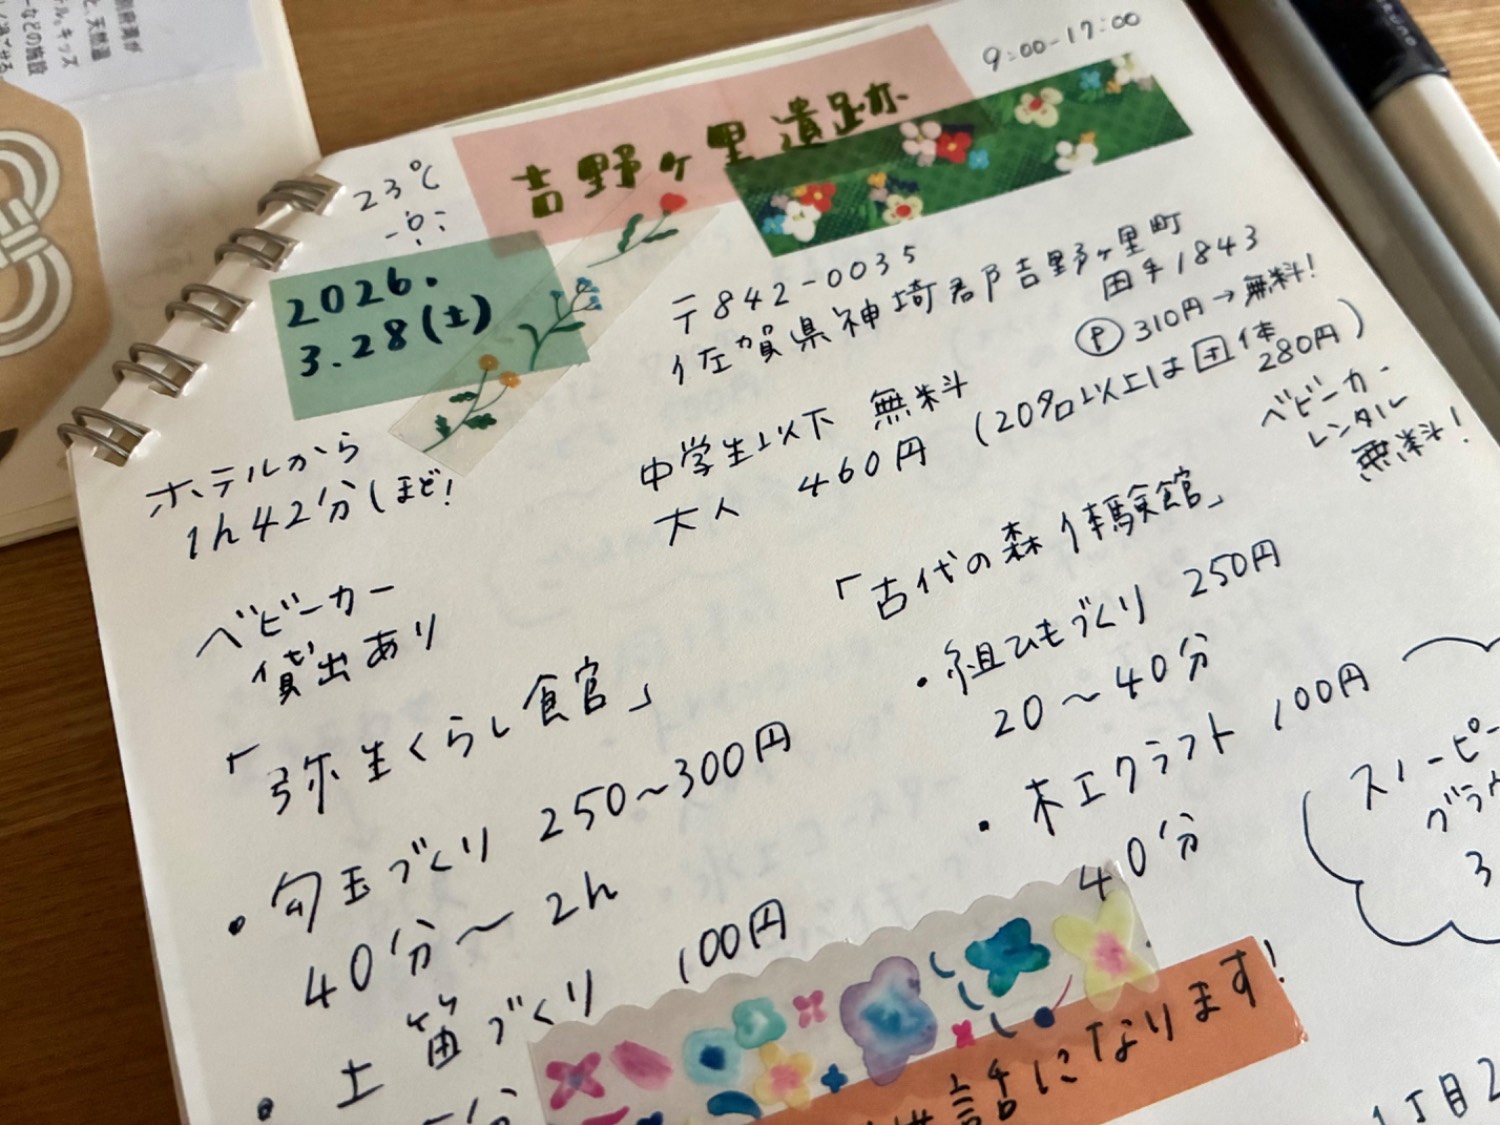 9:00-17:00
吉野ヶ里遺跡
23℃
2026.
3.28(土)
〒842-0035
佐賀県神埼郡吉野ヶ里町
田手1843
Ⓟ310円→無料!
中学生以下 無料
大人 460円 (20名以上は団体
280円)
ベビーカー
レンタル
無料!
ホテルから
1h42分ほど!
ベビーカー
貸出あり
「弥生くらし館」
・勾玉づくり 250~300円
40分~2h
・土笛づくり 100円
「古代の森体験館」
・組ひもづくり 250円
20~40分
・木工クラフト 100円
40分
スヌーピー
グラウ
3
話になります!
1丁目2
天然温
キッズ
などの施設